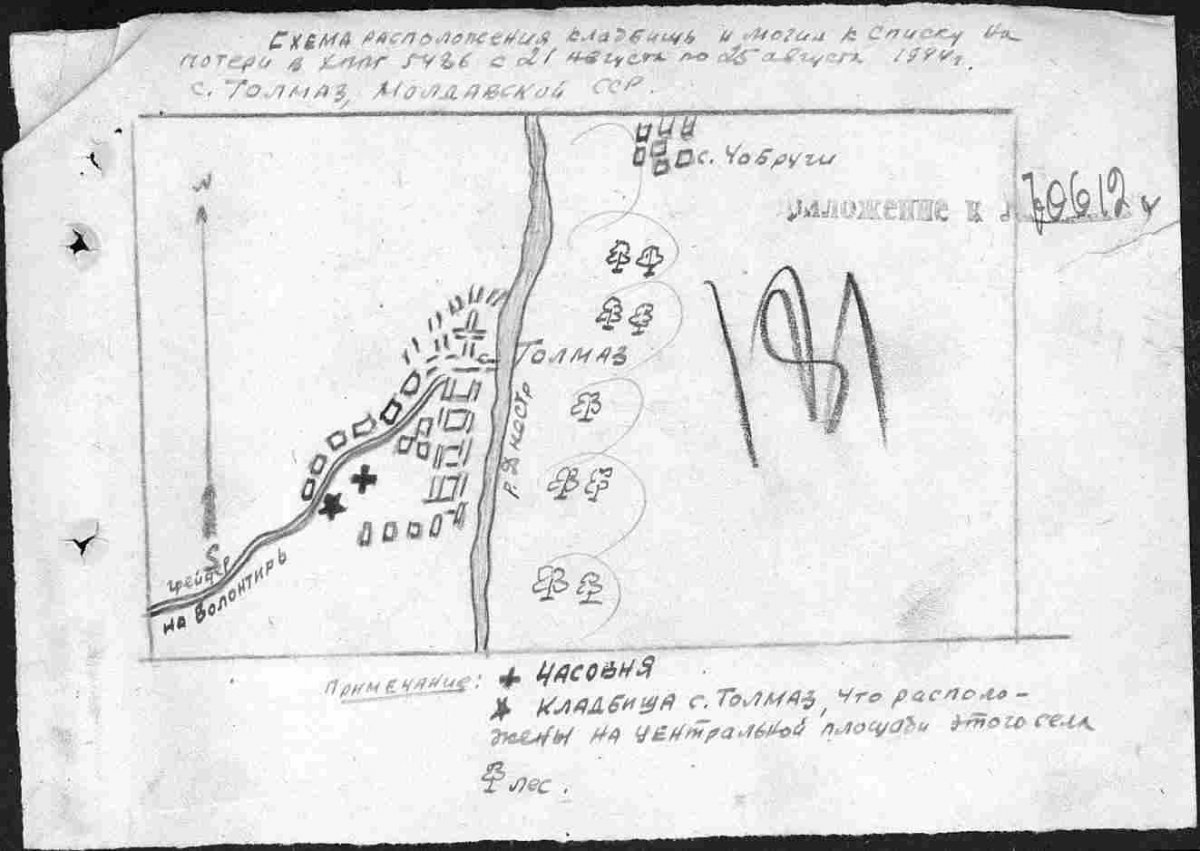 Схема расположения кладбищь и могил к списку на
потери в ХППГ 5426 с 21 августа по 25 августа 1944г.
с. Толмаз, Молдавской ССР.
N
с. Чобручи
приложение к 70612
181
с. Толмаз
р. Днестр
S
грейдер
на Волонтирь
Примечание: часовня
Кладбища с. Толмаз, что располо-
жены на центральной площади этого села
лес.